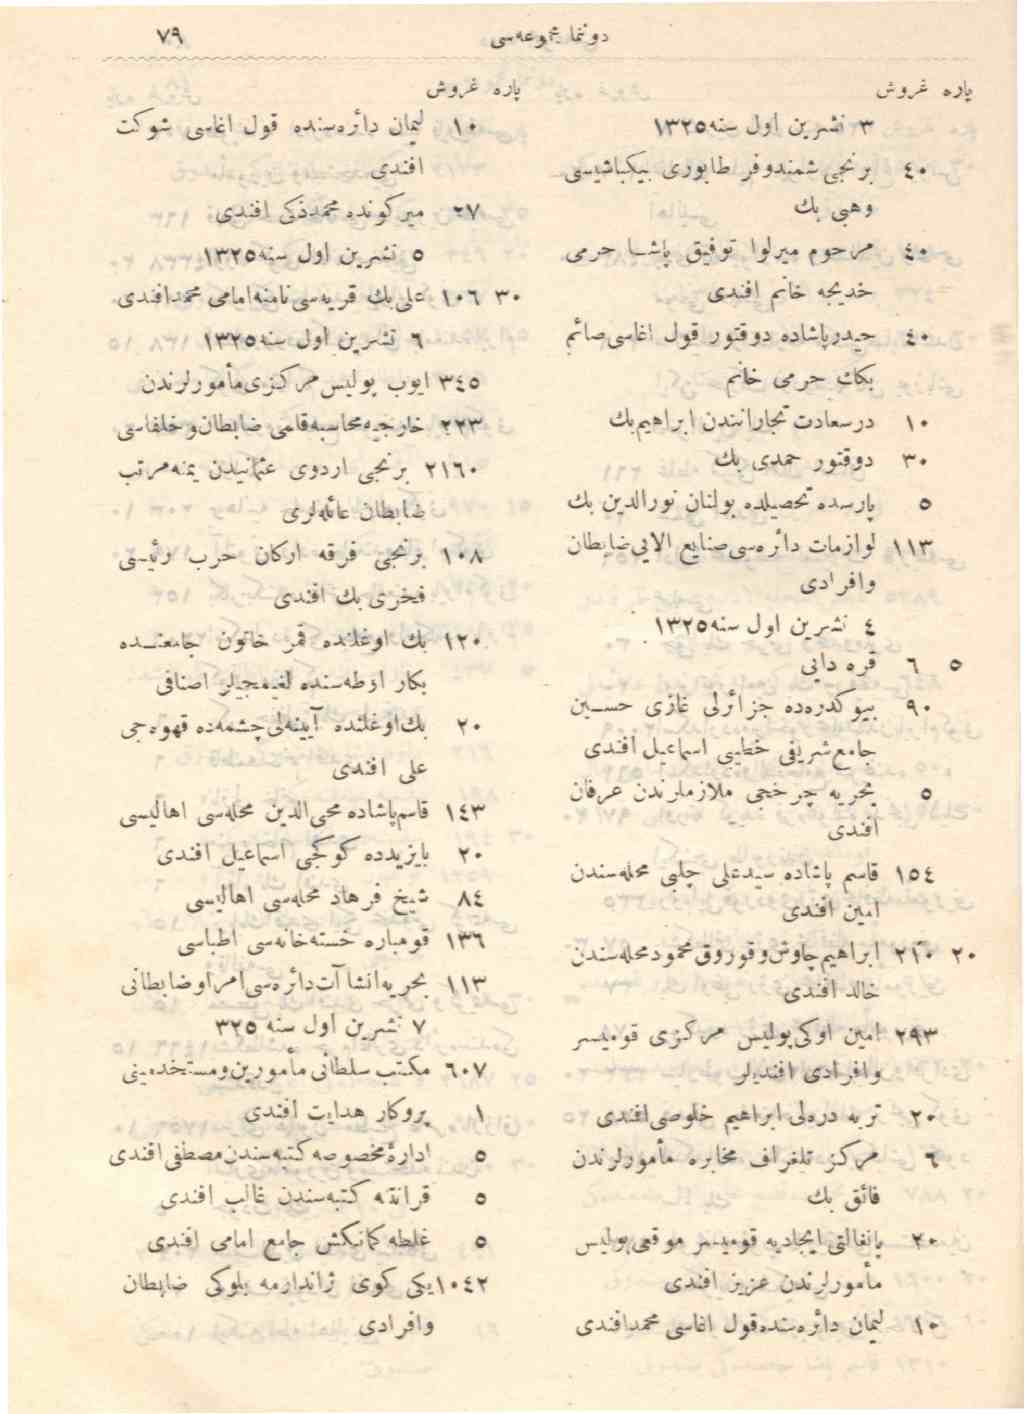 دوننما مجموعه‌سی ٧٩
پاره غروش
٣ تشرین اول سنه ١٣٢٥
٤٠ برنجی شمندوفر طابوری بیكباشیسی
وهبی بك
٤٠ مرحوم میرلوا توفیق پاشا حرمی
خدیجه خانم افندی
٤٠ حیدرپاشاده دوقتور قول اغاسی صائم
بكك حرمی خانم
١٠ درسعادت تجارانندن ابراهیم بك
٣٠ دوقتور حمدی بك
٥ پارسده تحصیلده بولنان نورالدین بك
١١٣ لوازمات دائره‌سی صنایع الایی ضابطان
وافرادی
٤ تشرین اول سنه ١٣٢٥
٥ ٦ قره دایی
٩٠ بیوكدره‌ده جزائرلی غازی حسین
جامع شریفی خطیبی اسماعیل افندی
٥ بحریه چرخجی ملازملرندن عرفان
افندی
١٥٤ قاسم پاشاده سیدعلی چلبی محله‌سندن
امین افندی
٢٠ ٢١٠ ابراهیم چاوش وقوروق محمود محله‌سندن
خالد افندی
٢٩٣ امین اوكی پولیس مركزی قومیسر
وافرادی افندیلر
٢٠ تربه دره‌لی ابراهیم خلوصی افندی
٦ مركز تلغراف مخابره مأمورلرندن
فائق بك
٢٠ پانغالتی ایجادیه قومیسر موقعی پولیس
مأمورلرندن عزیز افندی
١٠ لیمان دائره‌سنده قول اغاسی محمد افندی
پاره غروش
١٠ لیمان دائره‌سنده قول اغاسی شوكت
افندی
٢٧ میركونده محمد ذكی افندی
٥ تشرین اول سنه ١٣٢٥
٣٠ ١٠٦ علی بك قریه‌سی نامنه امامی محمد افندی
٦ تشرین اول سنه ١٣٢٥
٣٤٥ ایوب پولیس مركزی مأمورلرندن
٢٢٣ خارجیه محاسبه قلمی ضابطان وخلفاسی
٢١٦٠ برنجی اردوی عثمانیدن یمنه مرتب
ضابطان عائله‌لری
١٠٨ برنجی فرقه اركان حرب رئیسی
فخری بك افندی
١٢٠ بك اوغلنده قمر خاتون جامعنده
بكار اوطه‌سنده لغیمجیلر اصنافی
٢٠ بك اوغلنده آیینه‌لی چشمه‌ده قهوه‌جی
علی افندی
١٤٣ قاسم پاشاده محی الدین محله‌سی اهالیسی
٢٠ بایزیدده كوكجی اسماعیل افندی
٨٤ شیخ فرهاد محله‌سی اهالیسی
١٣٦ قومباره خسته‌خانه‌سی اطباسی
١١٣ بحریه انشاآت دائره‌سی امرا وضابطانی
٧ تشرین اول سنه ٣٢٥
٦٠٧ مكتب سلطانی مأمورین ومستخدمینی
١ پروكار هدایت افندی
٥ ادارهٔ مخصوصه كتبه‌سندن مصطفی افندی
٥ قرانتنه كتبه‌سندن غالب افندی
٥ غلطه كمانكش جامع امامی افندی
١٠٤٢ یكی كوی ژاندارمه بلوكی ضابطان
وافرادی